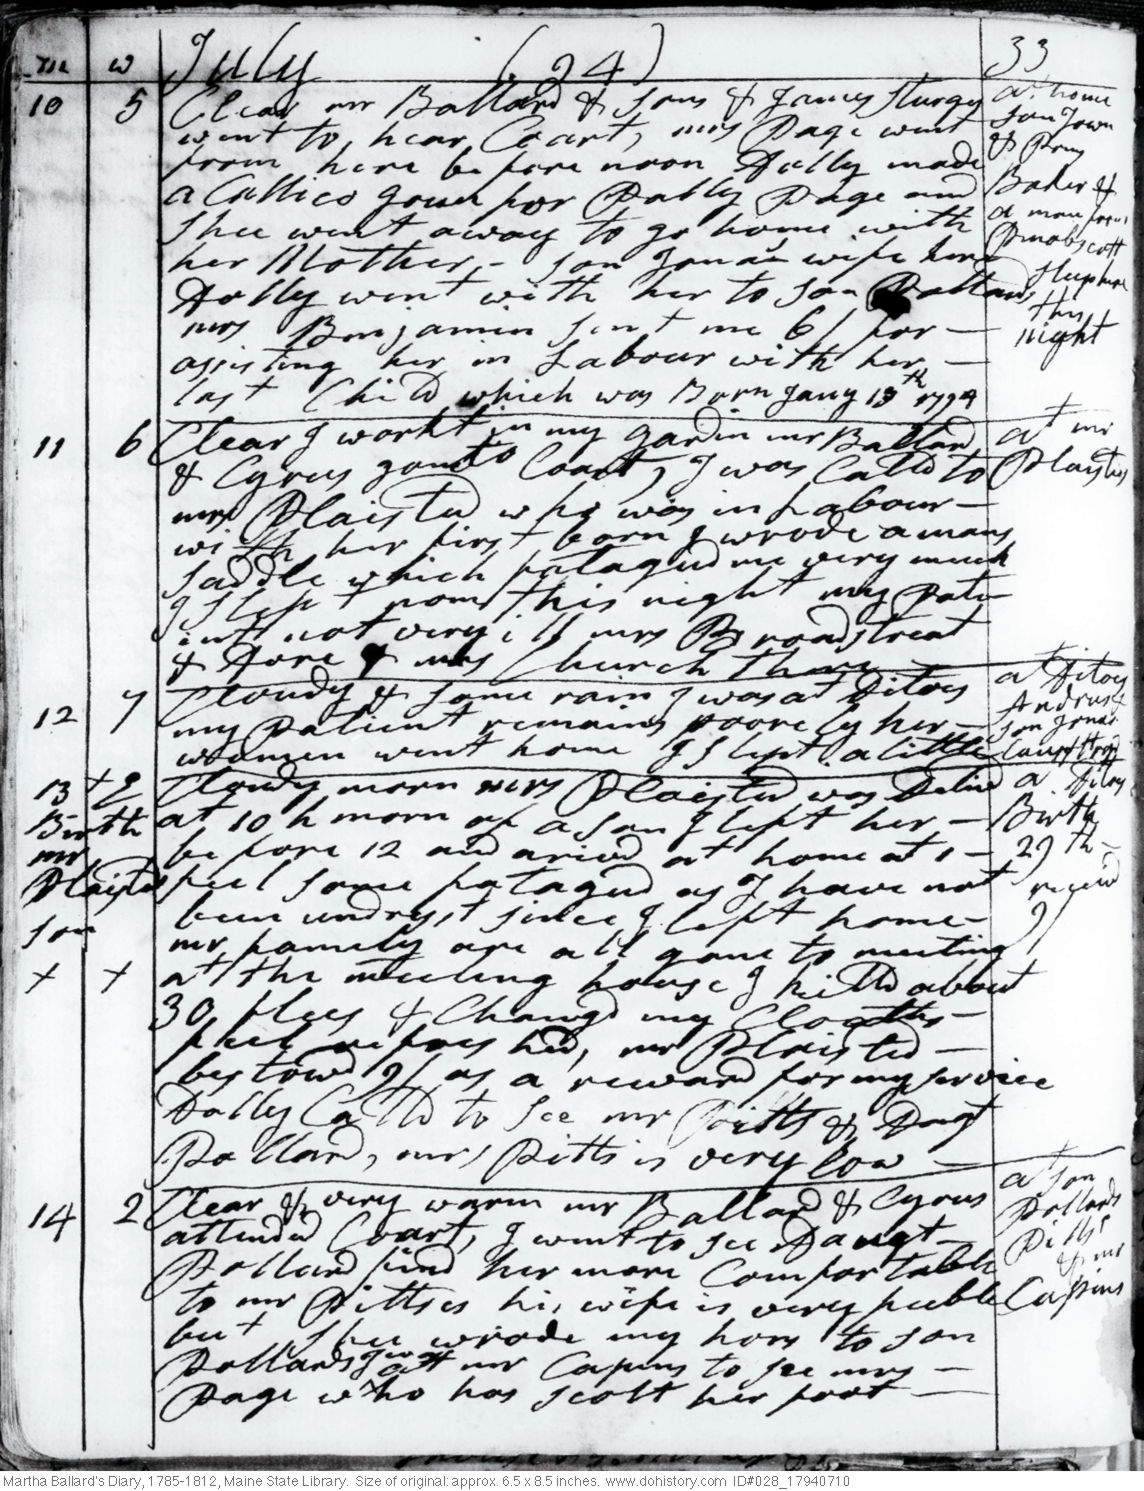 m w July (24) 33
10 5 Clear mr Ballard & Sons & James Sturgy
went to hear Coart, mrs Page went
from here before noon Dolly made
a Callico gown for Polly Page and
Shee went away to go home with
her Mother, - son Jona's wife here
Dolly went with her to Son Pollards
mrs Benjamin sent me 6/ for —
assisting her in Labour with her —
last Child which was Born Jany 13th 1794
at home
son Town
&
Baker &
a man from
Penobscott
sleep here
this
night
11 6 Clear I workt in my gardin mr Ballard
& Cyrus gone to Coart, I was Calld to
mrs Plaisted who was in Labour —
with her first born I wrode a mans
saddle which fatagud me very much
I slept none this night my Pati-
ent not very ill mrs Broadstreat
& Dore & mrs Church there —
at mr
Plaisteds
12 7 Cloudy & some rain I was at Ditoes
my Patient remains poorely her —
women went home I slept a little
at Ditoes
son Jonas
13 + E Cloudy morn mrs Plaisted was Delivd
at 10 h morn of a son I left her —
before 12 and arivd at home at 1 —
feel some fatagud as I have not
been undresst since I left home —
my family are all gone to meeting
at the meeting house I killd about
30 flees & Changd my Cloaths —
feel refreshed, mr Plaisted —
bestowd 9/ as a reward for my service
Dolly Calld to see mr Pitts & Dagt
Pollard, mrs Pitts is very low —
Birth
mr
Plaisteds
son
+ +
at Ditoes
Birth
29th —
receivd
9/
14 2 Clear & very warm mr Ballard & Cyrus
attended Coart, I went to see Daugt —
Pollard find her more Comfortable
to mr Pittses his wife is very feeble
but shee wrode my hors to son
Pollards I was att mr Capins to see mrs —
Page who has scolt her foot —
at son
Pollards
Pitts
& mr
Capins
Martha Ballard's Diary, 1785-1812, Maine State Library. Size of original: approx. 6.5 x 8.5 inches. www.dohistory.com ID#028_17940710